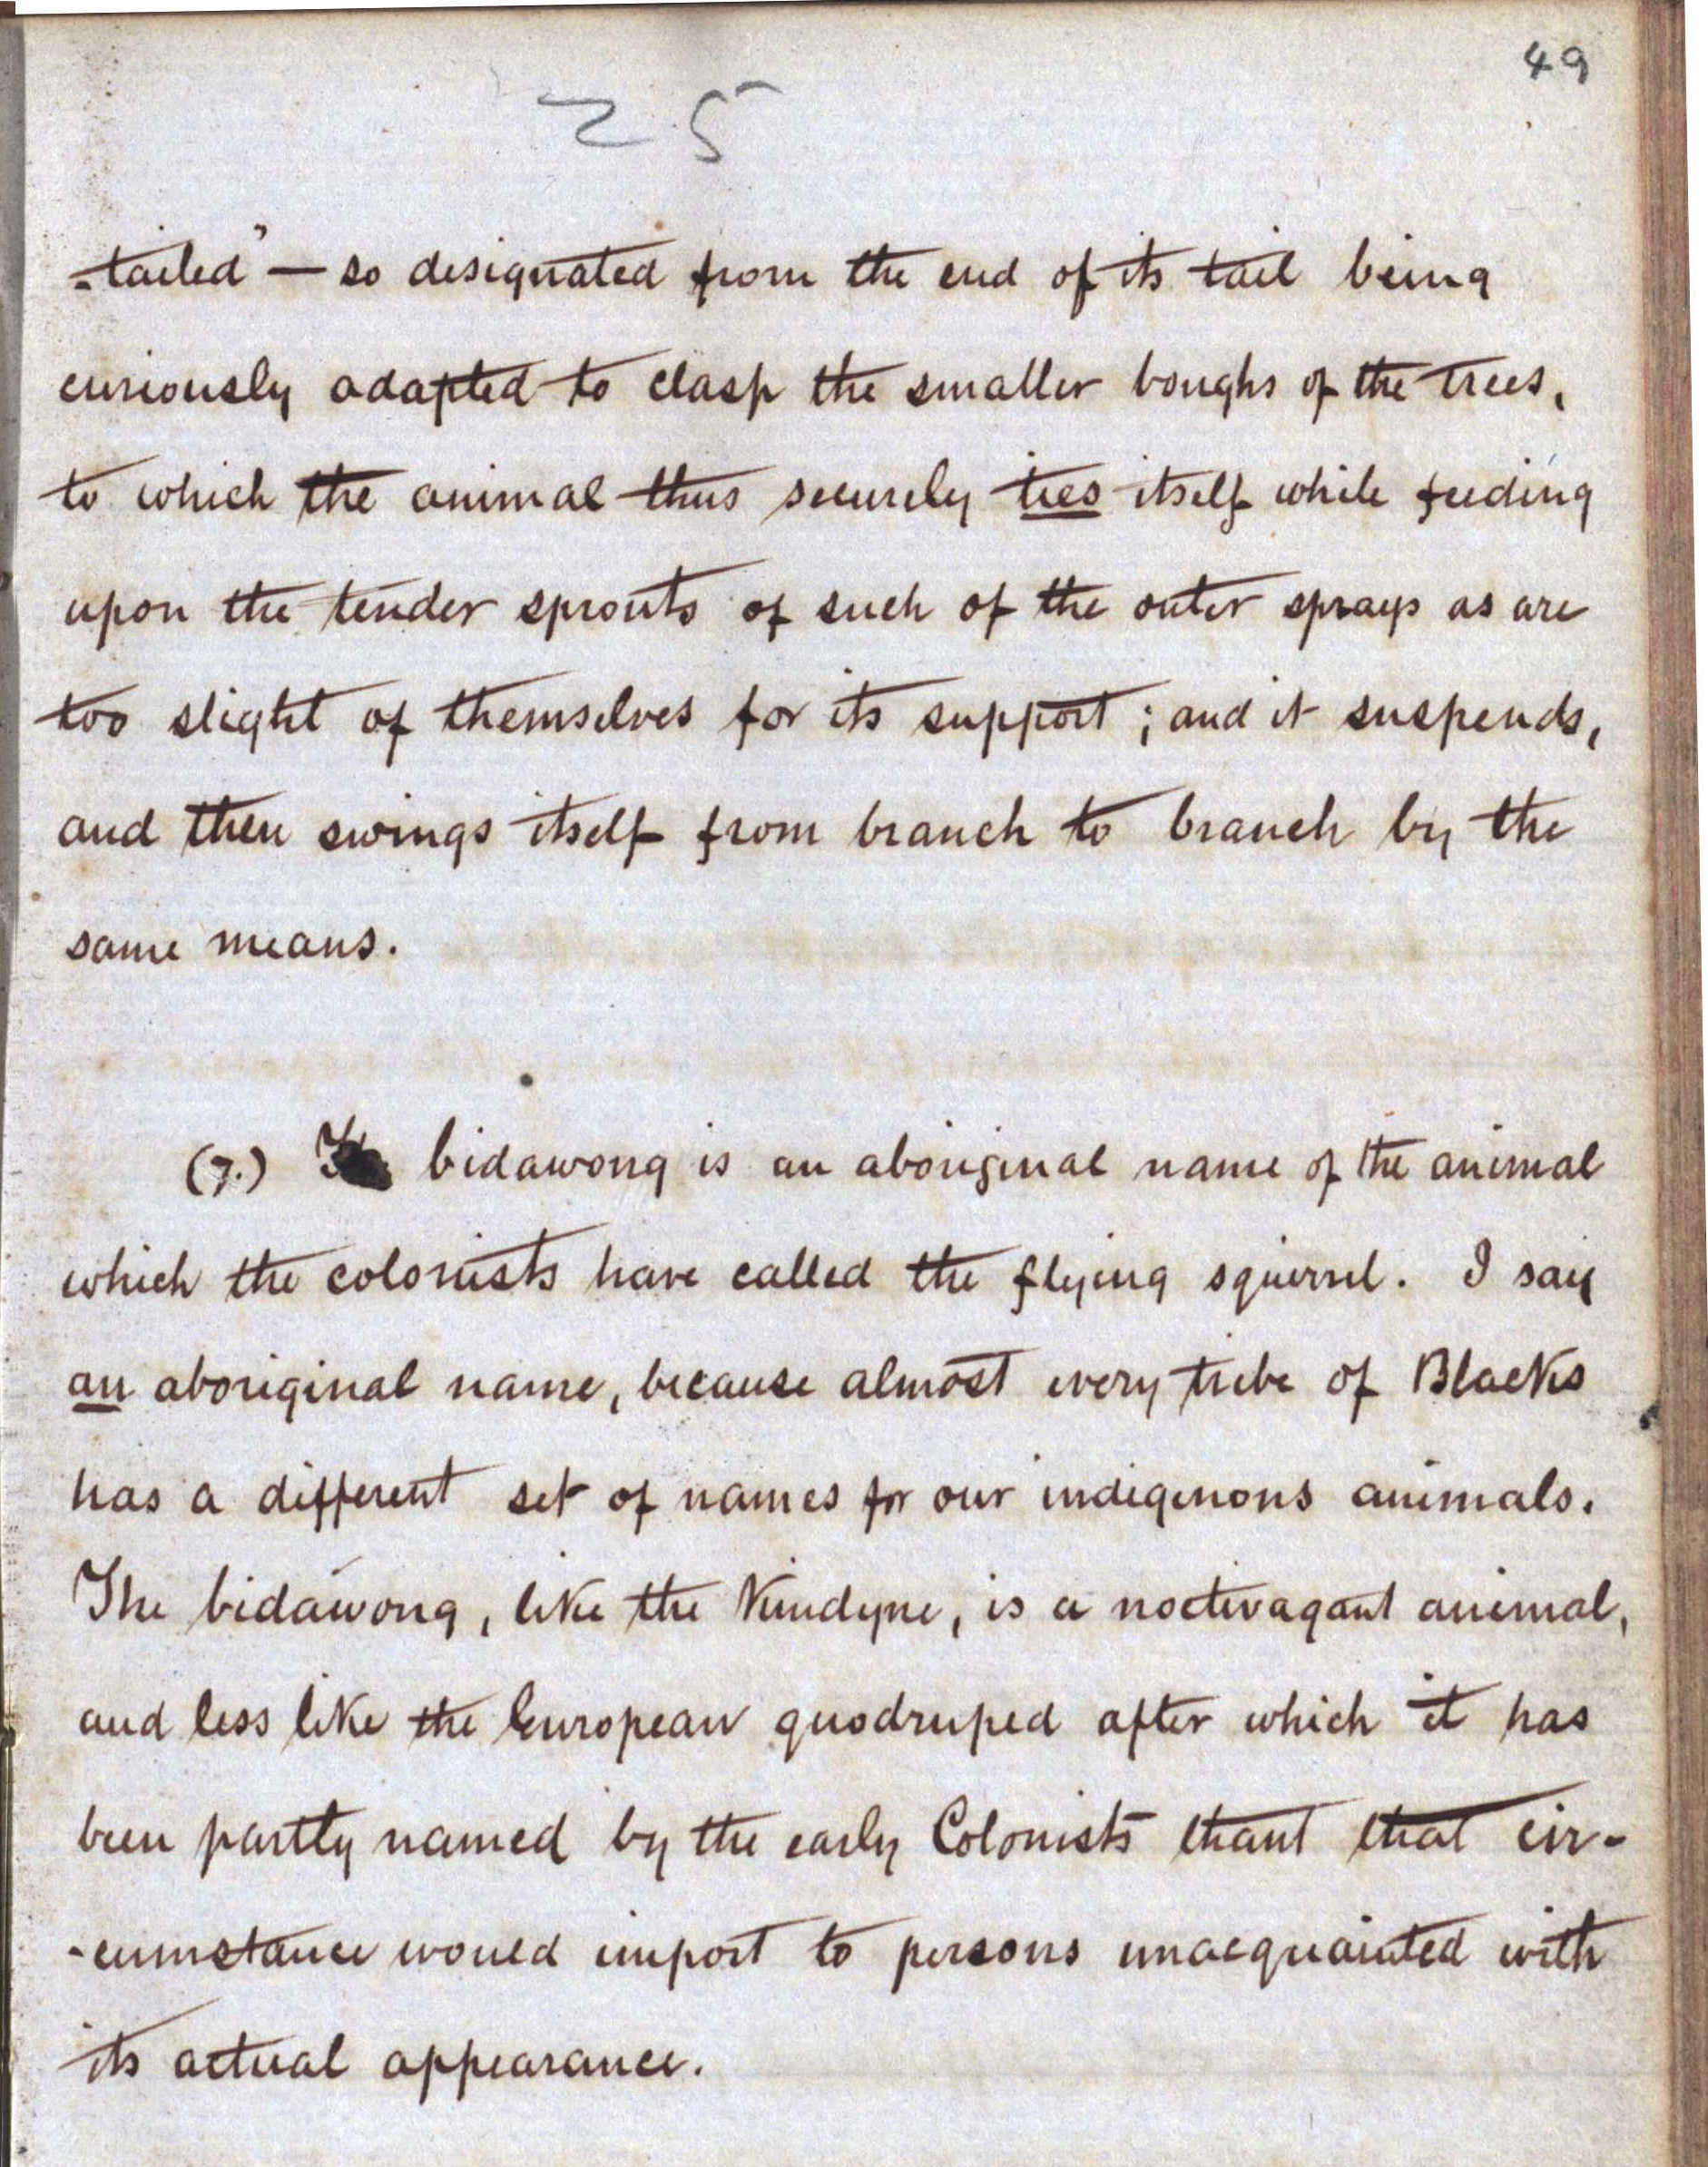 49
25
-tailed" — so designated from the end of its tail being
curiously adapted to clasp the smaller boughs of the trees,
to which the animal thus securely ties itself while feeding
upon the tender sprouts of such of the outer sprays as are
too slight of themselves for its support ; and it suspends,
and then swings itself from branch to branch by the
same means.
(7.) bidawong is an aboriginal name of the animal
which the colonists have called the flying squirrel. I say
an aboriginal name, because almost every tribe of Blacks
has a different set of names for our indigenous animals.
The bidawong, like the Kundyne, is a noctivagant animal,
and less like the European quodruped after which it has
been partly named by the early Colonists thant that cir-
-cumstance would import to persons unacquainted with
its actual appearance.